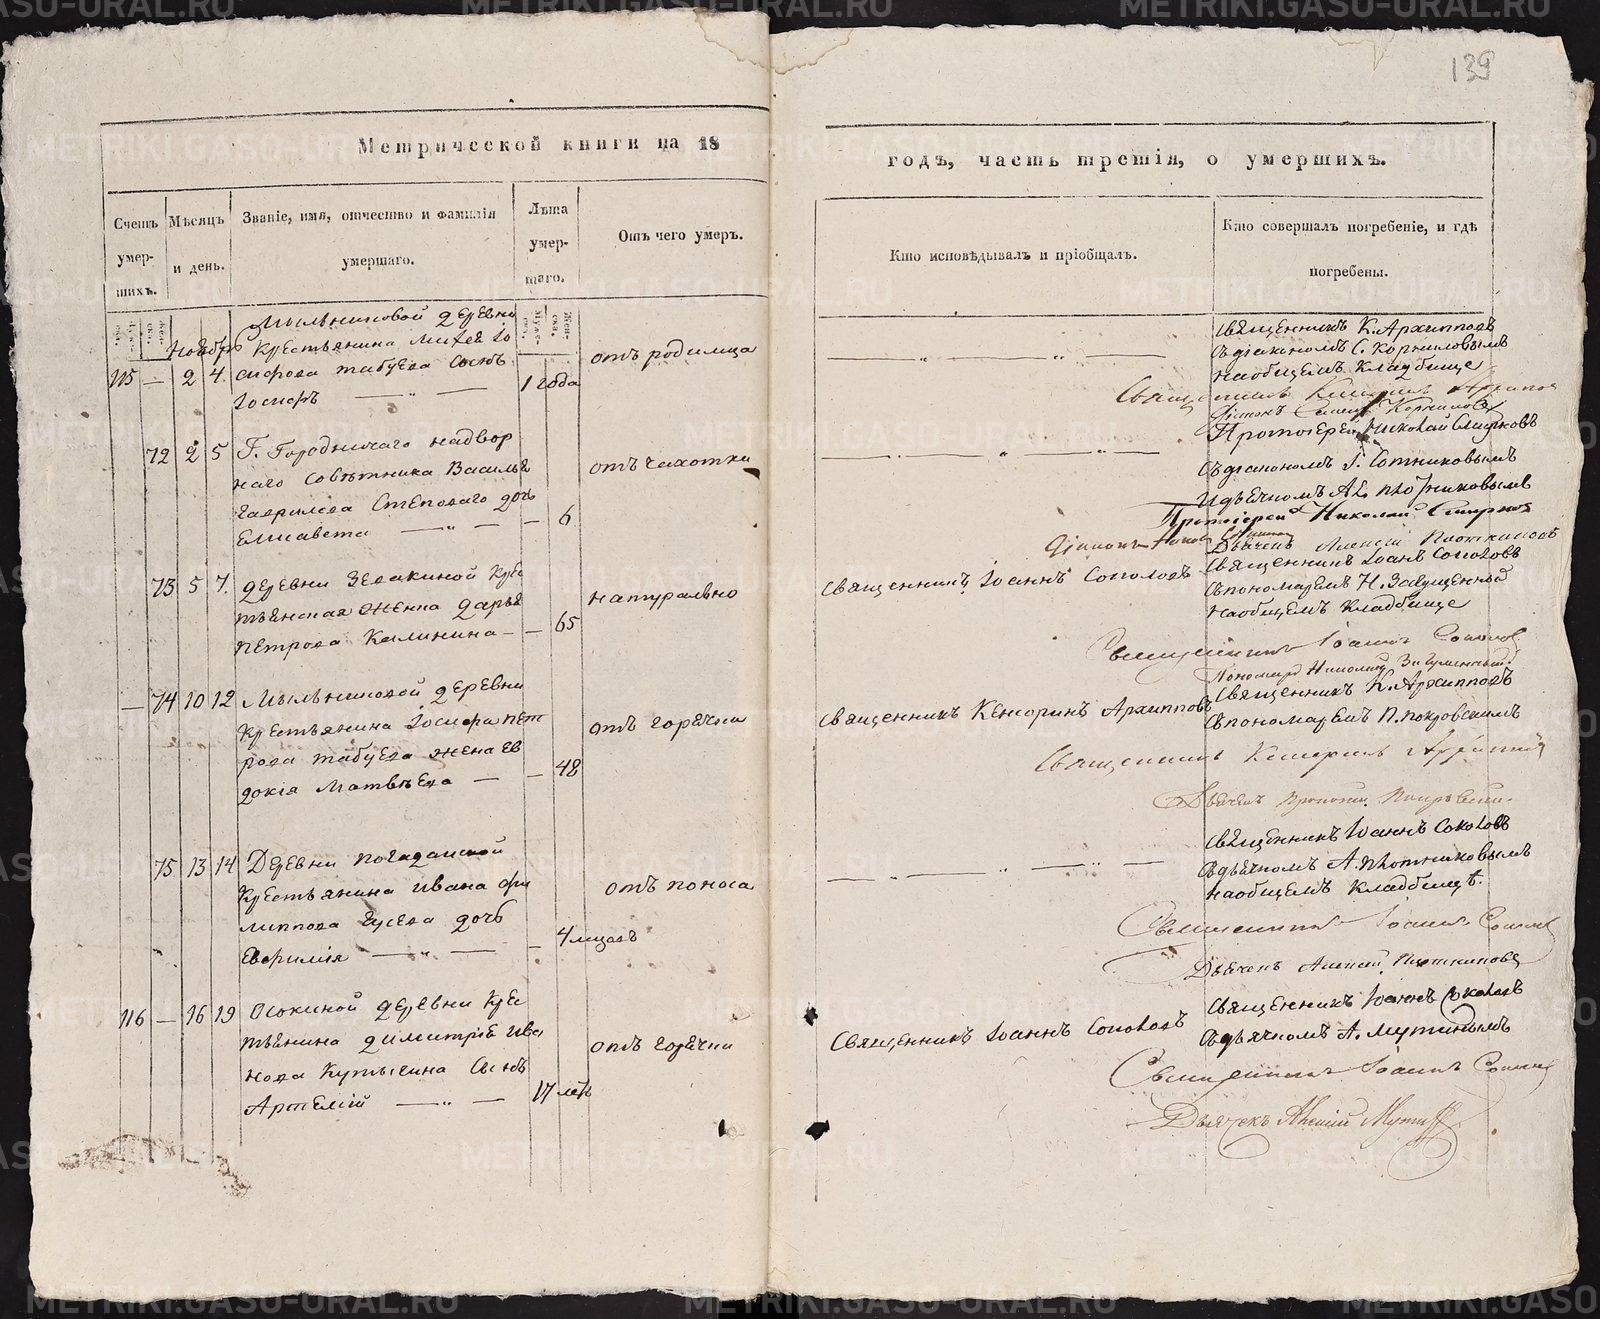 139
Метрической книги на 18
годъ, часть третія, о умершихъ.
Счетъ умер-шихъ.
Мѣсяцъ и день.
Званіе, имя, отчество и фамилія умершаго.
Лѣта умер-шаго.
Отъ чего умеръ.
Кто исповѣдывалъ и пріобщалъ.
Кто совершалъ погребеніе, и гдѣ погребены.
Ноябрь
Мыльниковой деревни
крестьянина
115 — 2 4
сынъ
1 года
отъ родимца
Священникъ К. Архипповъ
съ діакономъ С. Корниловымъ
на общемъ кладбище
72 2 5 Г. Городничаго надвор
наго Совѣтника Василья
Гаврилова Степоваго дочь
Елисавета — „ — — 6
отъ чахотки
Протоіерей Николай Смирновъ
съ діакономъ І. Сотниковымъ
и дьячкомъ Ал. Плотниковымъ
Протоіерей Николай Смирнов
Дьячекъ Алексій Плотниковъ
73 5 7. деревни Зедакиной крес
тьянская жёнка Дарья
Петрова Калинина — — 65
натурально
Священникъ Іоаннъ Соколовъ
Священникъ Іоанъ Соколовъ
съ пономаремъ Н. Загуменный
на общемъ кладбище
Священникъ Іоаннъ Соколов
Пономарь Николай Загуменный
— 74 10 12 Мыльниковой деревни
крестьянина Іосифа Пет
рова Табуева жена Ев
докія Матвѣева — — 48
отъ горячки
Священникъ Кенсоринъ Архипповъ
Священникъ К. Архипповъ
съ пономаремъ П. Покровскимъ
75 13 14 Деревни Погадайской
крестьянина Ивана Фи
липпова Гусева дочь
Евфимія — „ — — 4 мѣсяцъ
отъ поноса
Священникъ Іоаннъ Соколовъ
съ дьячкомъ А. Плотниковымъ
на общемъ кладбищѣ.
Священникъ Іоаннъ Соколов
Дьячекъ Алексій Плотниковъ
116 — 16 19 Осокиной деревни крес
тьянина Димитрія Ива
нова сынъ
Артемій — „ — 17 летъ
отъ горячки
Священникъ Іоаннъ Соколовъ
Священникъ Іоаннъ Соколовъ
съ дьячкомъ А. Мутинымъ
Священникъ Іоаннъ Соколов
Дьячекъ Алексій Мутинъ
METRIKI.GASO-URAL.RU